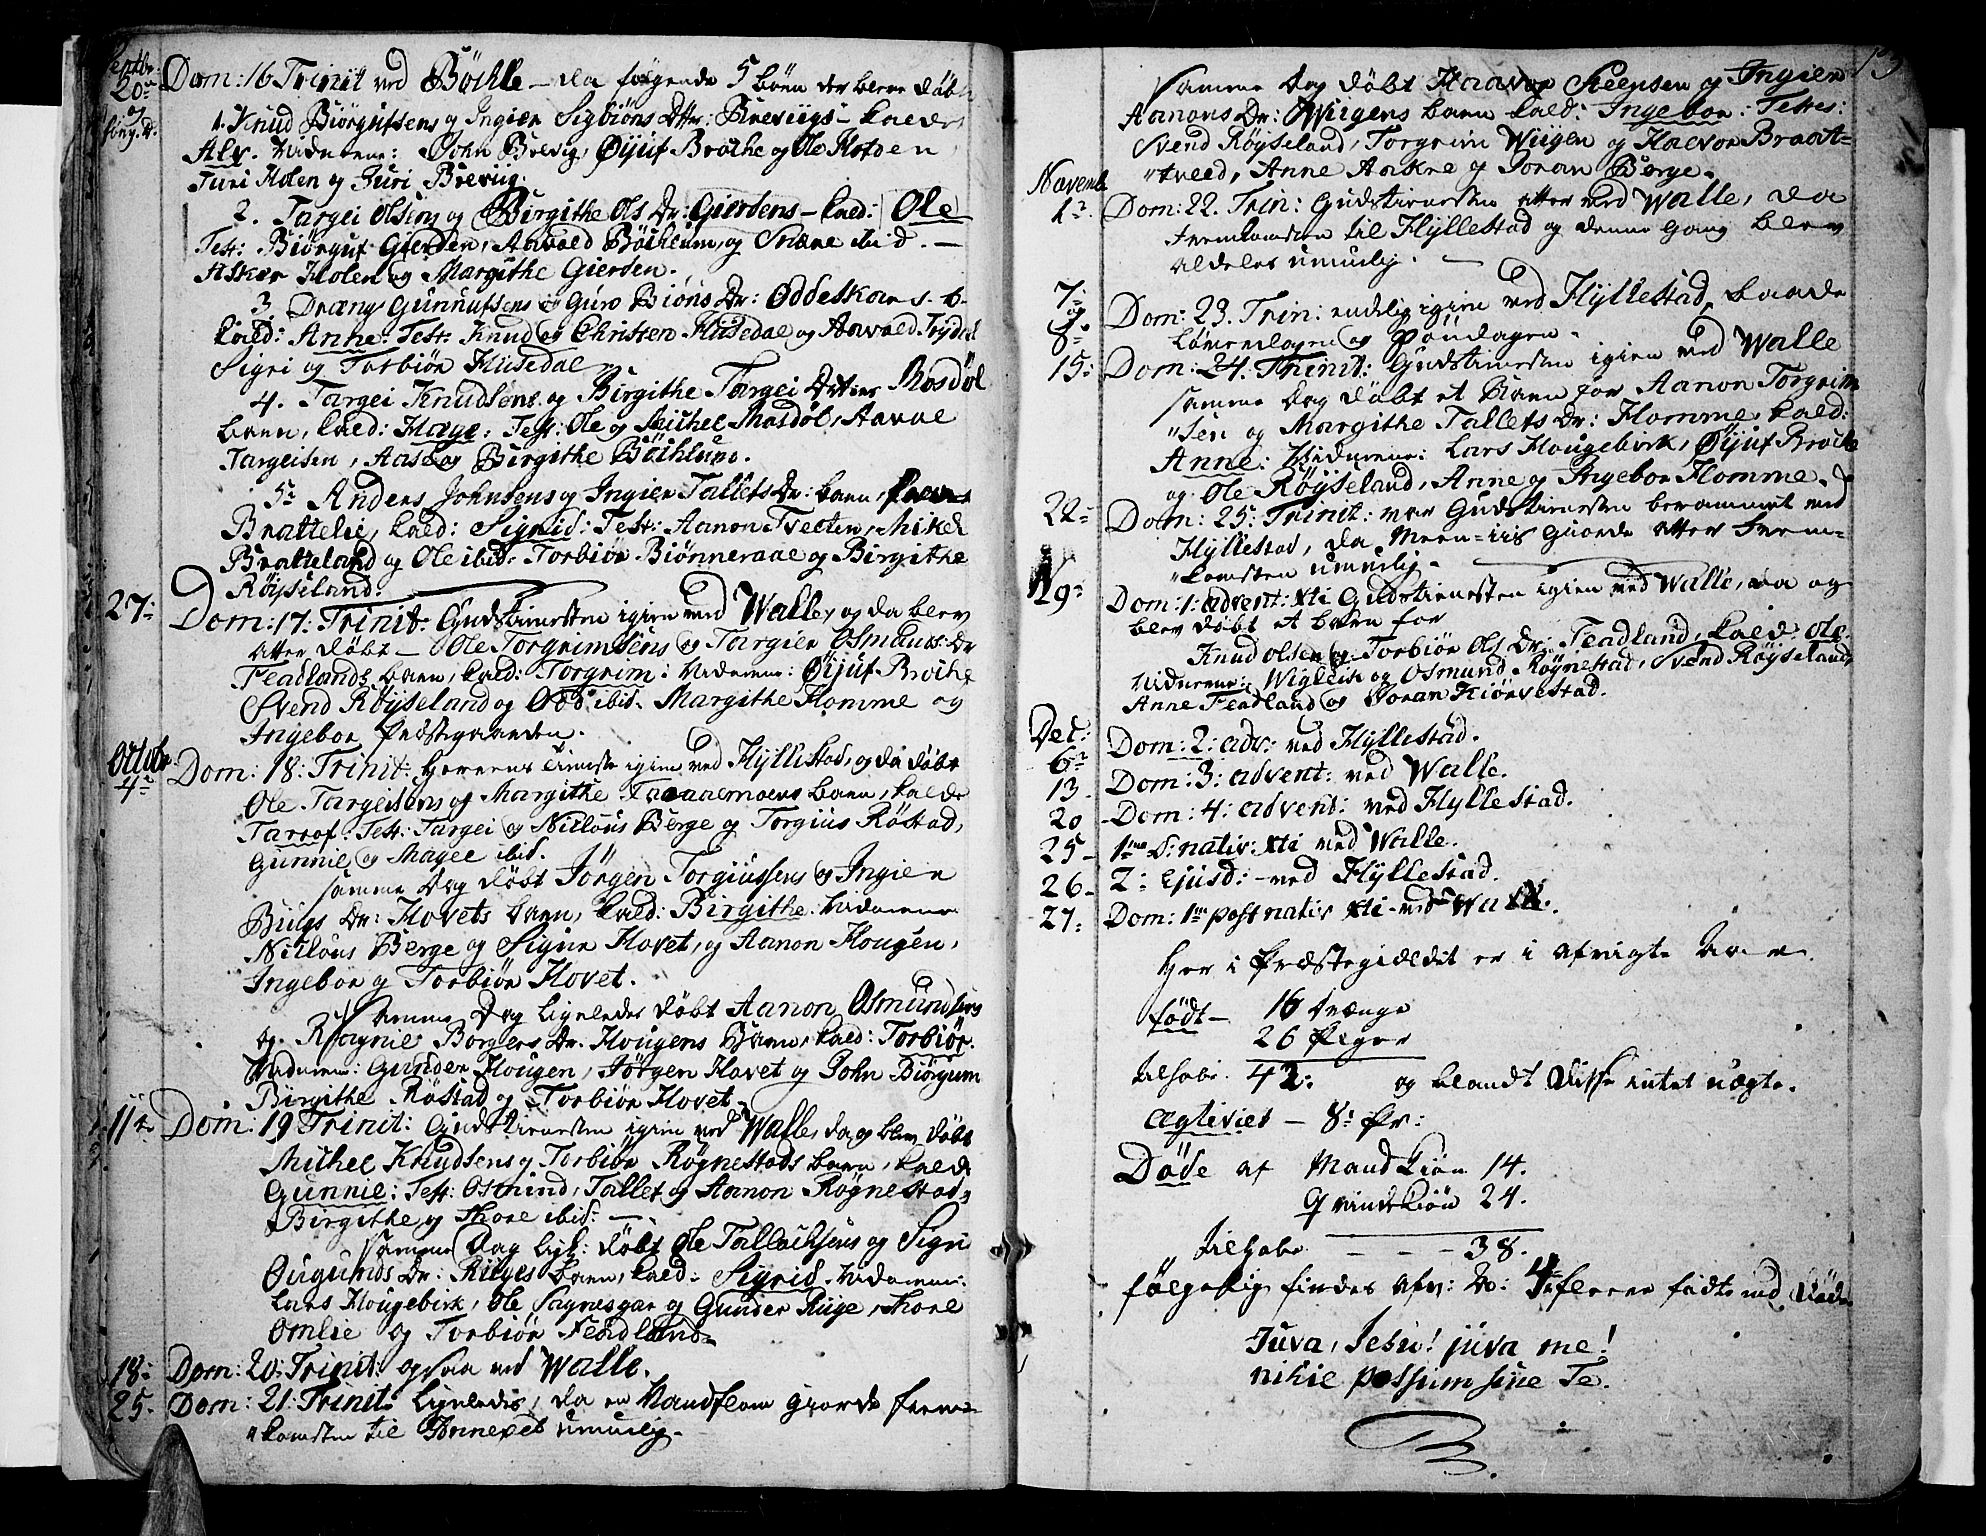 Septbr. 20de og foreg. D.
Dom: 16 Trinit ved Böchle – da følgende 5 børn der bleve døbt
1. Knud Biörgufsens og Ingier Sigbiöns Dtter: Breviigs – kaldet
Alv. Vidnerne: John Brevig, Øyuf Brothe og Ole Holden
Turi Holen og Juri Brevig.
2. Targei Olsens og Birgithe Ols Dr: Gierdens – kald: Ole
Test: Biörguf Gierden, Aavold Böchlum, og Snære ibid. –
Asker Holen og Margithe Gierden.
3. Dræng Gunnufsens og Guro Biöns Dr: Øddeskars b.
kald: Anne. Test: Knud og Christen Husedal og Aavald Tryd
Sigri og Torbiör Husedal
4. Targei Knudsens og Birgithe Targei Ditters Mosdöl
barn, kald: Haye: Test: Ole og Michel Mosdöl, Aavol
Targeisen, Aase og Birgithe Böchlum.
5. Anders Johnsens og Ingier Tallets Dr: barn,
Brattelie, kald: Sigrid: Test: Aanon Tveiten, Mikel
Bratteland og Ole ibid: Torbiör Biönneraae og Birgithe
Röyseland.
27: Dom: 17: Trinit: Gudstienesten igien ved Walle, og da blev
atter døbt – Ole Torgrimsens og Targier Osmunds Dr
Feadlands barn, kald: Torgrim: Vidnerne: Øyuf Brothe
Svend Röyseland og Odd ibid. Margithe Homme og
Ingebor Præstegaarden.
Octobr 4de Dom: 18: Trinit: Herrens tieneste igien ved Hyllestad, og da döbt
Ole Targeisens og Margithe barn, kaldt
Tarrof. Test: Targei og Niclous Berge og Torgius Röstad,
Gunnie og Magee ibid.
Samme Dag døbt Jörgen Torgiussens og Ingier
Bugs Dr: Hovets barn, kald: Birgithe. Vidnerne
Niclous Berge og Sigur Hovet, og Aanon Hougen,
Ingebor og Torbiör Hovet.
Samme Dag ligeledes døbt Aanon Osmundsens
og Ragnie Borgers Dr. Hougens Barn, kald: Torbiör.
Vidnerne: Gunder Hougen, Jörgen Hovet og John Biörgum
Birgithe Röstad og Torbiör Hovet.
11te Dom: 19 Trinit: Gudstienesten igien ved Walle, da og blev døbt
Michel Knudsens og Torbiör Rögnestads barn, kaldt
Gunnie: Test: Osmund, Tallet og Aanon Rögnestad,
Birgithe og Thore ibid: –
Samme Dag lige: døbt Ole Talleichsens og Sigri
Ougunds Dr: Riiges barn, kald: Sigrid. Vidnerne
Lars Hougebirk, Ole Sagnesgar og Gunder Riige, Thore
Omlie og Torbiör Feadland.
18: Dom: 20: Trinit: ogsaa ved Walle.
25. Dom: 21: Trinit: ligeledes, da en Vandflom giorde frem-
"komsten til Annexet umuelig.
13
Samme Dag døbt Haavor Steensen og Ingier
Aanons Dr: Wiigens barn kald: Ingebor: Testes:
Svend Röyseland, Torgrim Wiigen og Haevor Braat-
"tveed, Anne Aakre og Joran Berge.
Novemb 1ste Dom: 22. Trin: Gudstienesten atter ved Walle, da
fremkomsten til Hyllestad og denne Gang blev
aldeles umuelig. –
7de og 8de Dom: 23. Trin: endelig igien ved Hyllestad, baade
Løverdagen og Søndagen.
15: Dom: 24. Trinit: Gudstienesten igien ved Walle
samme Dag døbt et Barn for Aanon Torgrim
"sen og Margithe Tallets Dr: Homme, kald:
Anne: Vidnerne: Lars Hougebirk, Øyuf Brothe
og Ole Röyseland, Anne og Ingebor Homme.
22: Dom: 25: Trinit: var Gudstienesten berammet ved
Hyllestad, da Meen-iis giorde atter Frem-
"komsten umuelig.
29: Dom: 1: advent: Xti Gudstienesten igien ved Walle, da og
blev døbt et barn for
Knud Olsen og Torbiör Ols Dr: Feadland, kald: Ole.
Vidnerne: Wigleik og Osmund Rögnestad, Svend Röyseland
Anne Feadland og Joran Kiörvestad.
Dec: 6te Dom: 2: adv: ved Hyllestad.
13 Dom: 3: advent: ved Walle.
20 Dom: 4: advent: ved Hyllestad.
25 – 1ma d: nativ: Xti ved Walle.
26 – 2: Ejusd: – ved Hyllestad.
27: Dom: 1ma post nativ Xti – ved Walle.
Her i Præstegieldet er i afvigte Aar
født – 16 Drænge
26 Piger
tilsam: 42: og blandt disse intet uægte.
Ægteviet – 8: Pr:
Døde af Mandkiön 14.
Qvindekiön 24.
tilsam – – – 38.
følgelig findes afv: Aar: 4 fleere født end døde
Juva, Jesu! juva me!
nihil possum sine Te.